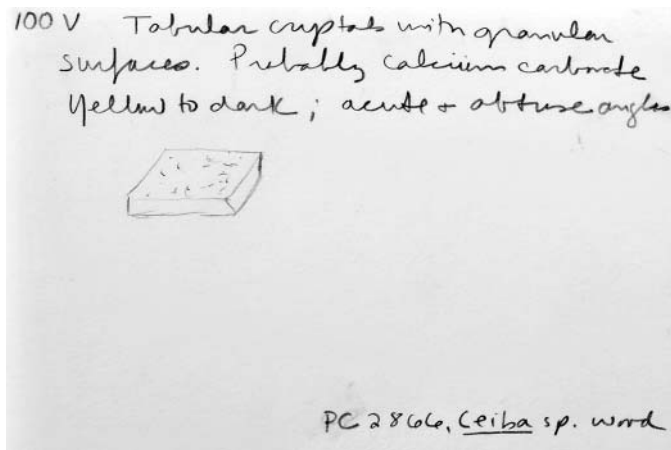 100 V Tabular crystals with granular
surfaces. Probably calcium carbonate
Yellow to dark; acute + obtuse angles
PC 2866, Ceiba sp. wood